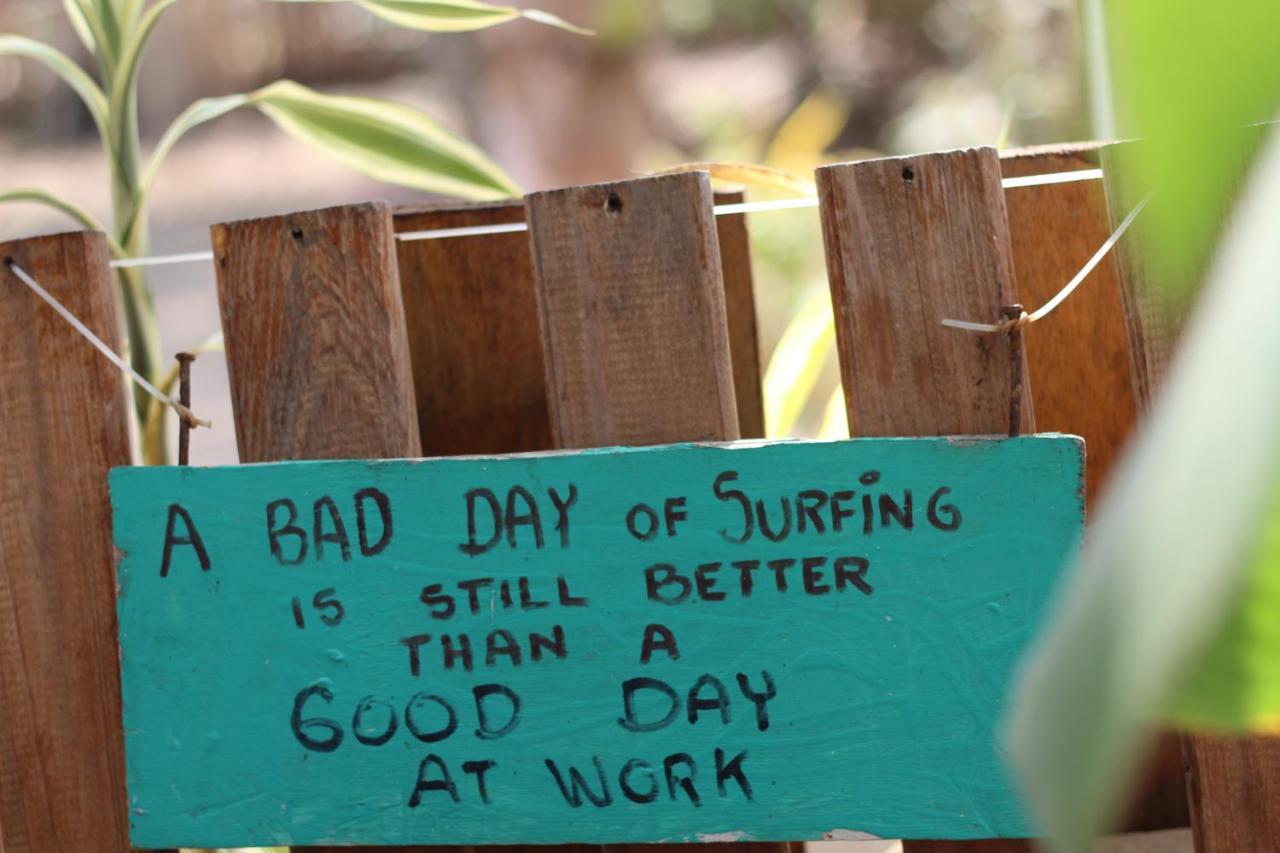 A BAD DAY OF SURFiNG
IS STILL BETTER
THAN A
GOOD DAY
AT WORK